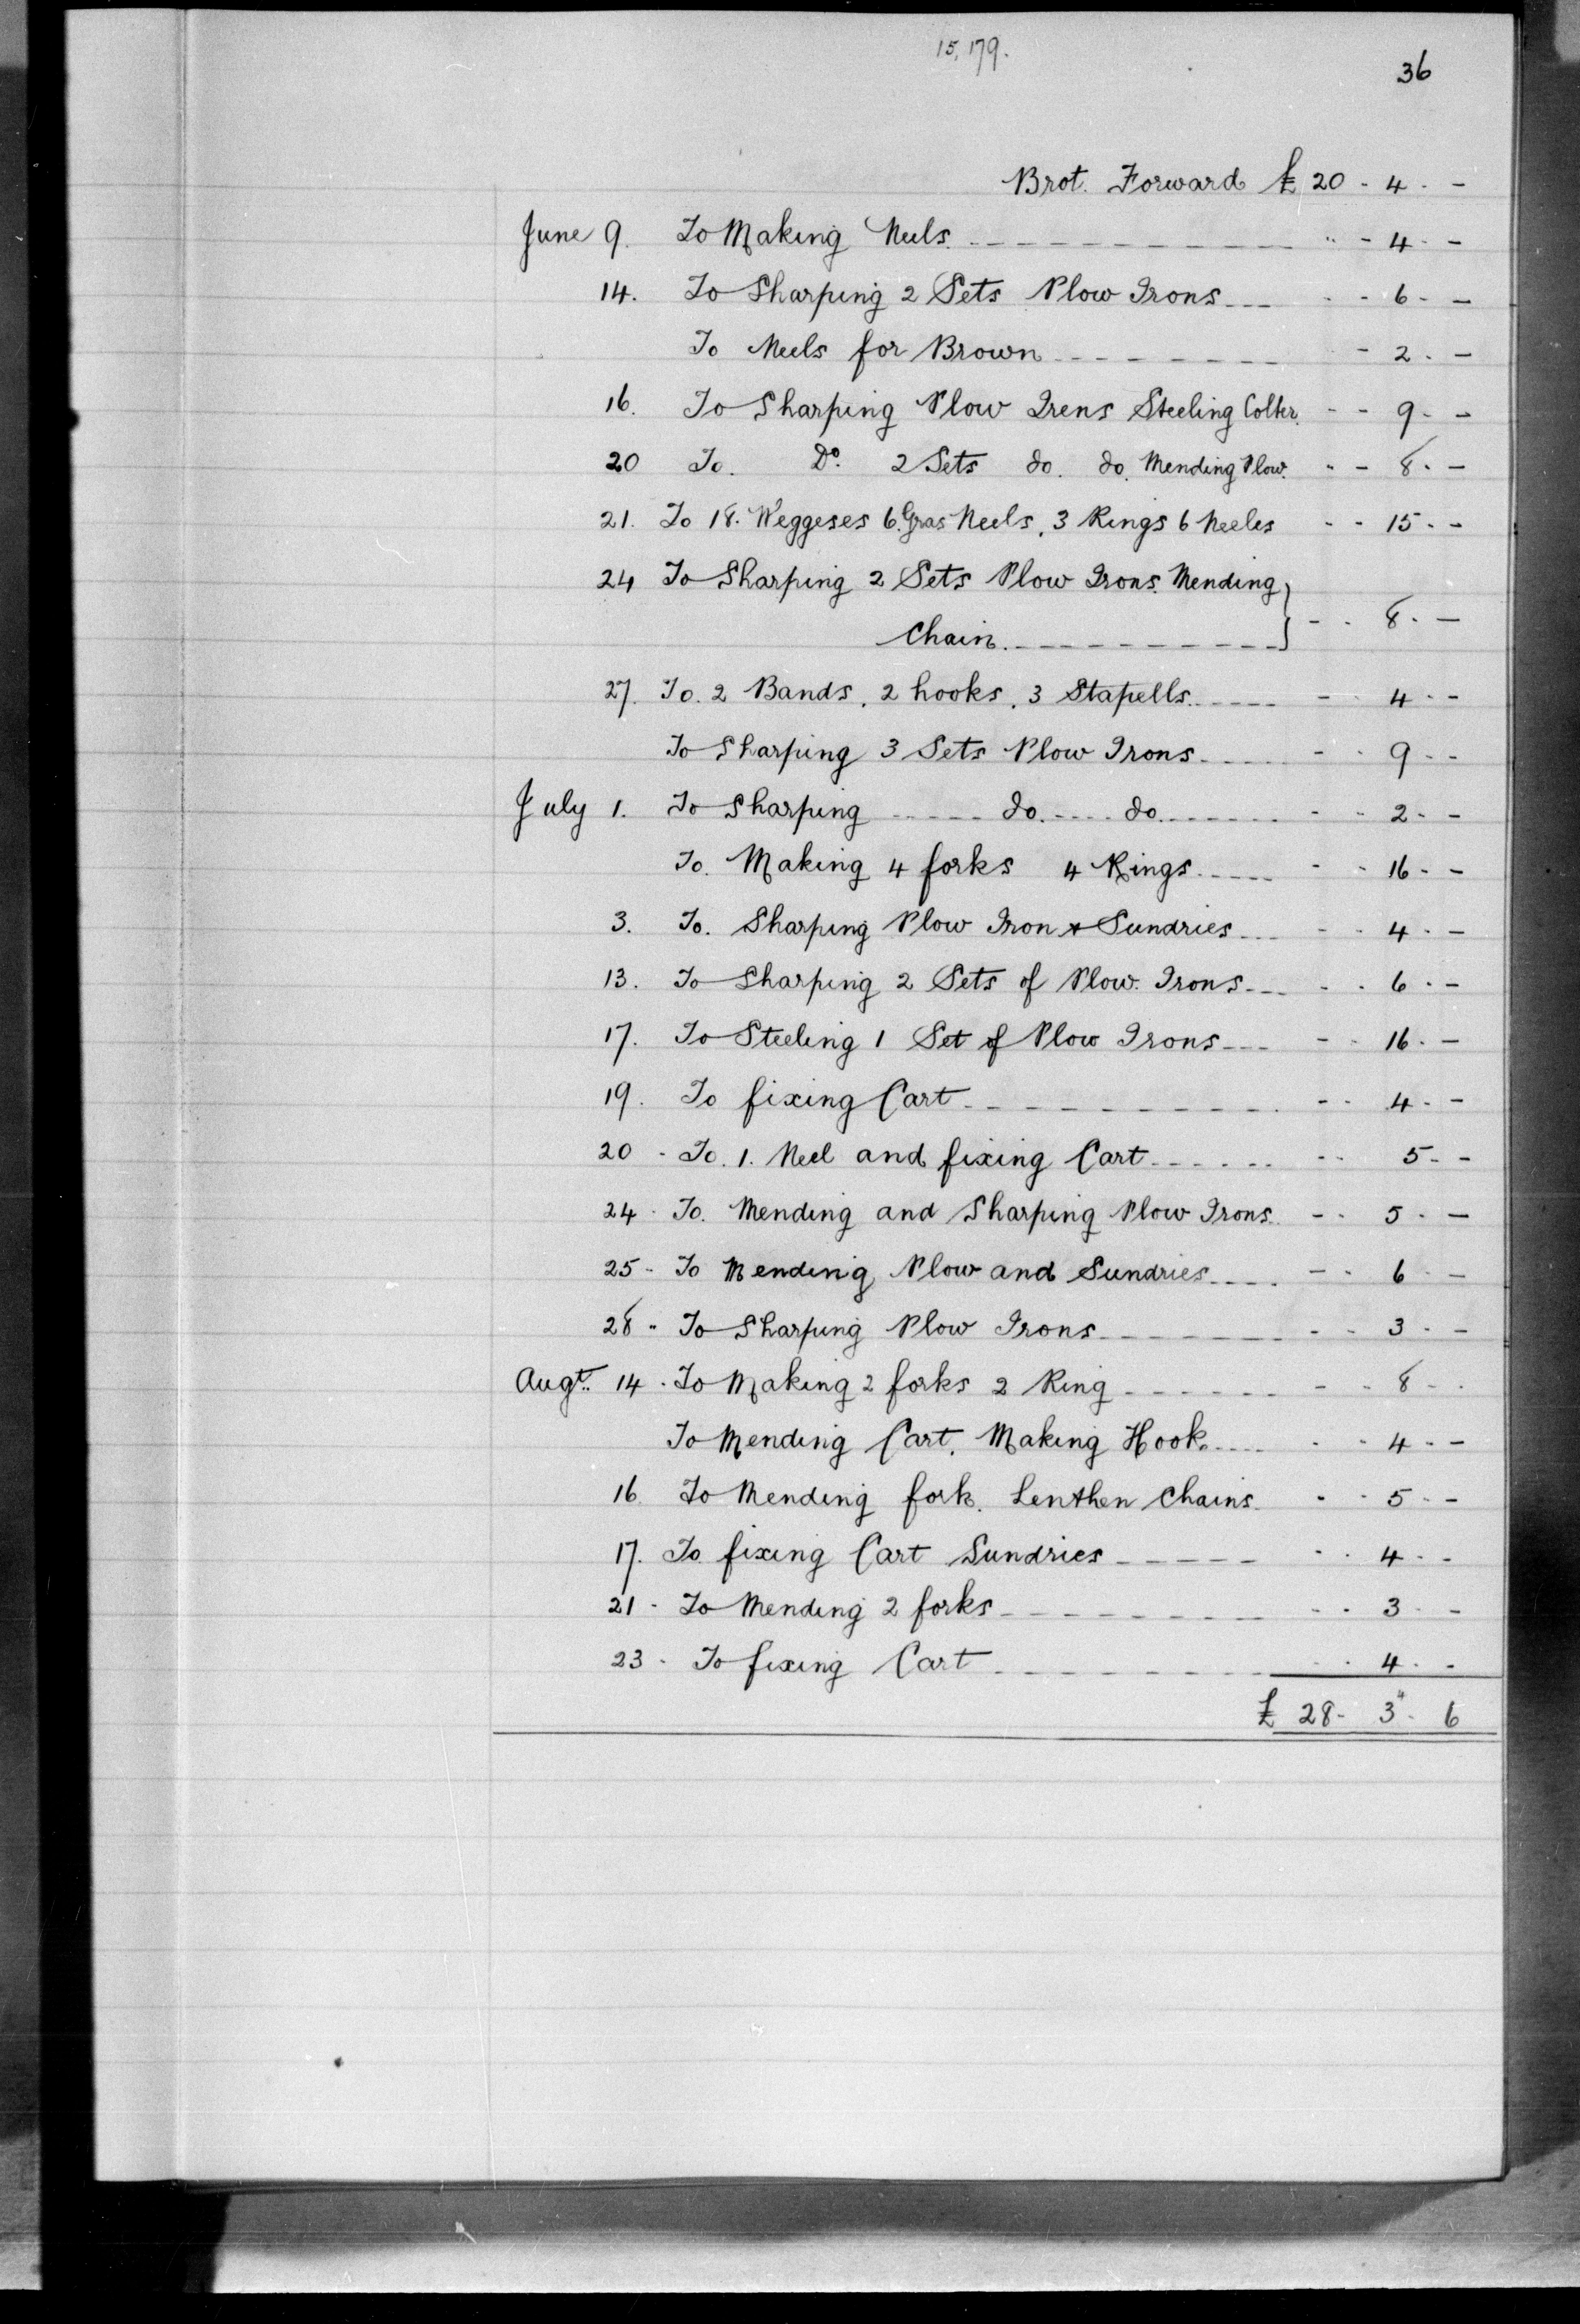 15,179.
36
Brot. Forward £ 20 - 4 - -
June 9. To Making Neels - - 4 - -
14. To Sharping 2 Sets Plow Irons - - 6 - -
To Neels for Brown - 2 - -
16. To Sharping Plow Irens Steeling Colter. - - 9 - -
20 To. Do. 2 Sets do. do. Mending Plow. - - 8 - -
21. To 18. Weggeses 6. Gras Neels, 3 Rings 6 Neeles - - 15 - -
24 To Sharping 2 Sets Plow Irons. Mending
Chain. } - - 8 - -
27. To. 2 Bands, 2 hooks, 3 Stapells - - 4 - -
To Sharping 3 Sets Plow Irons - - 9 - -
July 1. To Sharping do. do. - - 2 - -
To. Making 4 forks 4 Rings - - 16 - -
3. To. Sharping Plow Iron & Sundries - - 4 - -
13. To Sharping 2 Sets of Plow. Irons - - 6 - -
17. To Steeling 1 Set of Plow Irons - - 16 - -
19. To fixing Cart - - 4 - -
20 - To. 1. Neel and fixing Cart - - 5 - -
24 - To. Mending and Sharping Plow Irons. - - 5 - -
25 - To Mending Plow and Sundries - - 6 - -
28 - To Sharping Plow Irons - - 3 - -
Augt. 14 - To Making 2 forks 2 Ring - - 8 - -
To Mending Cart, Making Hook - - 4 - -
16. To Mending fork. Lenthen Chains - - 5 - -
17. To fixing Cart Sundries - - 4 - -
21 - To Mending 2 forks - - 3 - -
23 - To fixing Cart - - 4 - -
£ 28 - 3" - 6